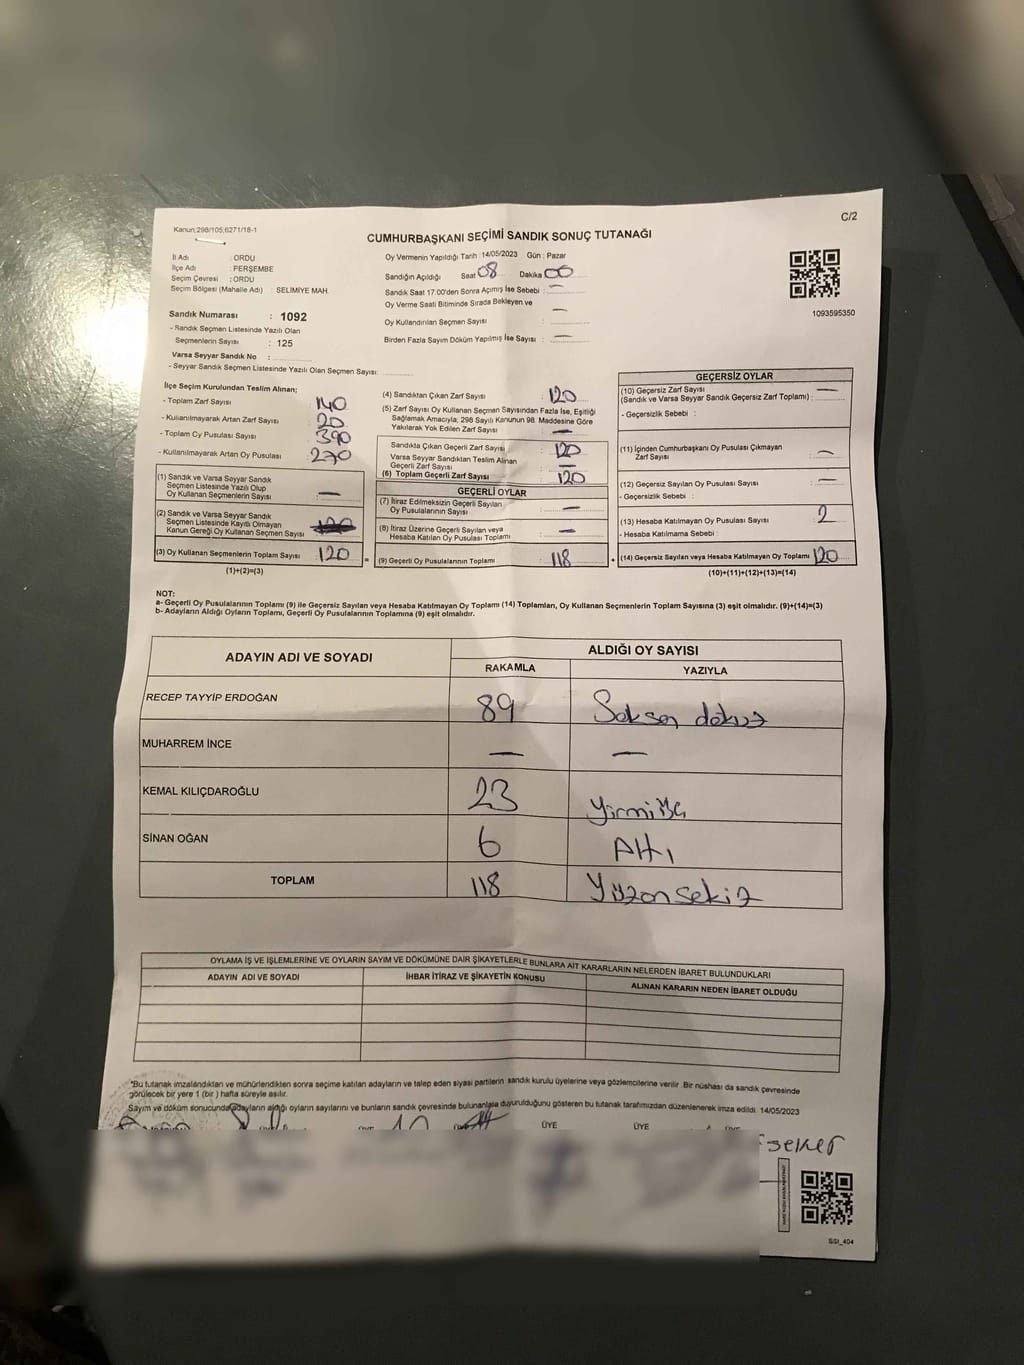 C/2
Kanun;298/105;6271/18-1
CUMHURBAŞKANI SEÇİMİ SANDIK SONUÇ TUTANAĞI
İl Adı : ORDU
İlçe Adı : PERŞEMBE
Seçim Çevresi : ORDU
Seçim Bölgesi (Mahalle Adı) : SELİMİYE MAH.
Oy Vermenin Yapıldığı Tarih :14/05/2023 Gün : Pazar
Sandığın Açıldığı Saat 08 Dakika 00
Sandık Saat 17:00'den Sonra Açımış İse Sebebi : —
Oy Verme Saati Bitiminde Sırada Bekleyen ve
Oy Kullandırılan Seçmen Sayısı : —
Birden Fazla Sayım Döküm Yapılmış İse Sayısı : —
1093595350
Sandık Numarası : 1092
- Sandık Seçmen Listesinde Yazılı Olan
Seçmenlerin Sayısı : 125
Varsa Seyyar Sandık No :
- Seyyar Sandık Seçmen Listesinde Yazılı Olan Seçmen Sayısı:
İlçe Seçim Kurulundan Teslim Alınan;
- Toplam Zarf Sayısı 140
- Kullanılmayarak Artan Zarf Sayısı 20
- Toplam Oy Pusulası Sayısı 390
- Kullanılmayarak Artan Oy Pusulası 270
(1) Sandık ve Varsa Seyyar Sandık
Seçmen Listesinde Yazılı Olup
Oy Kullanan Seçmenlerin Sayısı —
(2) Sandık ve Varsa Seyyar Sandık
Seçmen Listesinde Kayıtlı Olmayan
Kanun Gereği Oy Kullanan Seçmen Sayısı 120
(3) Oy Kullanan Seçmenlerin Toplam Sayısı 120
(1)+(2)=(3)
(4) Sandıktan Çıkan Zarf Sayısı : 120
(5) Zarf Sayısı Oy Kullanan Seçmen Sayısından Fazla İse, Eşitliği
Sağlamak Amacıyla; 298 Sayılı Kanunun 98. Maddesine Göre
Yakılarak Yok Edilen Zarf Sayısı : —
Sandıkta Çıkan Geçerli Zarf Sayısı : 120
Varsa Seyyar Sandıktan Teslim Alınan
Geçerli Zarf Sayısı : —
(6) Toplam Geçerli Zarf Sayısı : 120
GEÇERLİ OYLAR
(7) İtiraz Edilmeksizin Geçerli Sayılan
Oy Pusulalarının Sayısı : —
(8) İtiraz Üzerine Geçerli Sayılan veya
Hesaba Katılan Oy Pusulası Toplamı : —
= (9) Geçerli Oy Pusulalarının Toplamı : 118 +
GEÇERSİZ OYLAR
(10) Geçersiz Zarf Sayısı —
(Sandık ve Varsa Seyyar Sandık Geçersiz Zarf Toplamı) :
- Geçersizlik Sebebi :
(11) İçinden Cumhurbaşkanı Oy Pusulası Çıkmayan
Zarf Sayısı : —
(12) Geçersiz Sayılan Oy Pusulası Sayısı : —
- Geçersizlik Sebebi :
(13) Hesaba Katılmayan Oy Pusulası Sayısı : 2
- Hesaba Katılmama Sebebi :
(14) Geçersiz Sayılan veya Hesaba Katılmayan Oy Toplamı : 120
(10)+(11)+(12)+(13)=(14)
NOT:
a- Geçerli Oy Pusulalarının Toplamı (9) ile Geçersiz Sayılan veya Hesaba Katılmayan Oy Toplamı (14) Toplamları, Oy Kullanan Seçmenlerin Toplam Sayısına (3) eşit olmalıdır. (9)+(14)=(3)
b- Adayların Aldığı Oyların Toplamı, Geçerli Oy Pusulalarının Toplamına (9) eşit olmalıdır.
ADAYIN ADI VE SOYADI ALDIĞI OY SAYISI
RAKAMLA YAZIYLA
RECEP TAYYİP ERDOĞAN 89 Seksen dokuz
MUHARREM İNCE — —
KEMAL KILIÇDAROĞLU 23 Yirmi üç
SİNAN OĞAN 6 Altı
TOPLAM 118 Yüzonsekiz
OYLAMA İŞ VE İŞLEMLERİNE VE OYLARIN SAYIM VE DÖKÜMÜNE DAİR ŞİKAYETLERLE BUNLARA AİT KARARLARIN NELERDEN İBARET BULUNDUKLARI
ADAYIN ADI VE SOYADI İHBAR İTİRAZ VE ŞİKAYETİN KONUSU ALINAN KARARIN NEDEN İBARET OLDUĞU
*Bu tutanak imzalandıktan ve mühürlendikten sonra seçime katılan adayların ve talep eden siyasi partilerin sandık kurulu üyelerine veya gözlemcilerine verilir. Bir nüshası da sandık çevresinde
görülecek bir yere 1 (bir ) hafta süreyle asılır.
Sayım ve döküm sonucunda adayların aldığı oyların sayılarını ve bunların sandık çevresinde bulunanlara duyurulduğunu gösteren bu tutanak tarafımızdan düzenlenerek imza edildi. 14/05/2023
ÜYE ÜYE
şeker
SSI_404